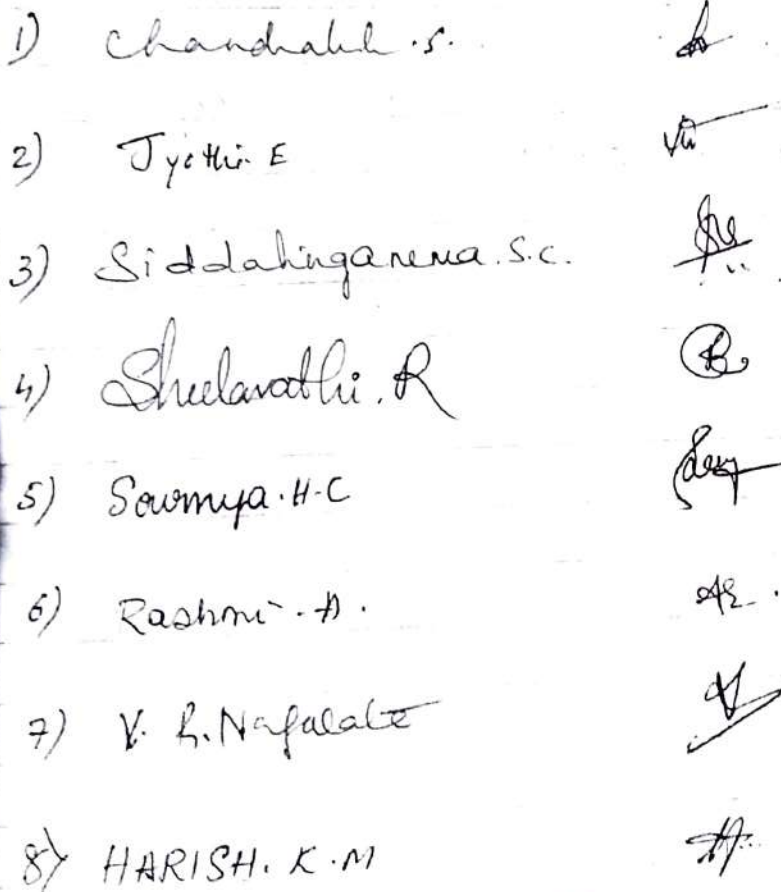 1) Chandrakala .S.
2) Jyothi. E
3) Siddalinganna. S.C.
4) Sheelavathi. R
5) Sowmya. H.C
6) Rashmi. A.
7) V. R. Nagalata
8) HARISH. K. M